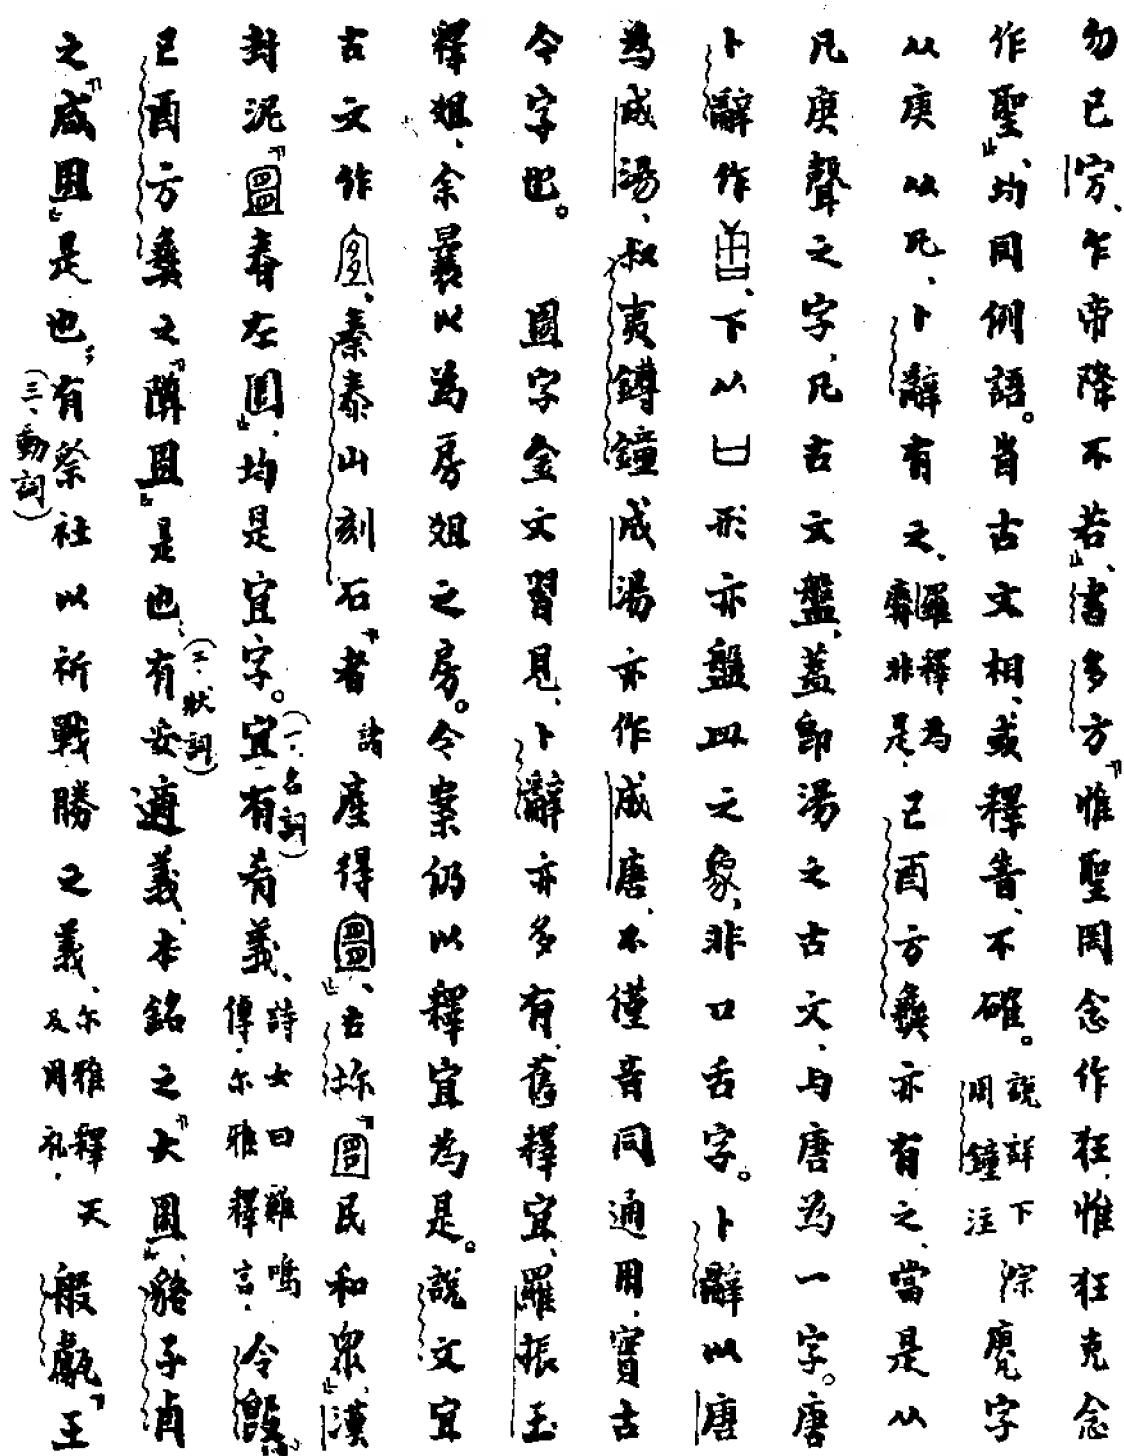 勿已㝑、乍帝降不若』、書多方『惟聖罔念作狂、惟狂克念
作聖』、均同例語。肯古文相、或釋眚、不确。說詳下周鐘注 淙𢉩字
从庚从凡、卜辭有之、羅釋為𪗋非是、己酉方彝亦有之、當是从
凡庚聲之字、凡古文盤、蓋即湯之古文、与唐為一字。唐
卜辭作𠹧、下从凵形亦盤皿之象、非口舌字。卜辭以唐
為成湯、叔夷鎛鐘成湯亦作成唐、不僅音同通用、實古
今字也。 圖字金文習見、卜辭亦多有、舊釋宜、羅振玉
釋俎、余曩以為房俎之房。今案仍以釋宜為是。說文宜
古文作𡧧、秦泰山刻石『者諸產得宜』、古鉨『宜民和眾』、漢
封泥『宜春左園』、均是宜字。宜有肴義、詩女曰雞鳴傳、尔雅釋言、令𣪘
己酉方彝之『䵼宜』是也、有安適義、本銘之『大宜』、貉子卣
之『咸宜』是也、有祭社以祈戰勝之義、尔雅釋天及周礼、般甗『王
(一、名詞)
(二、狀詞)
(三、動詞)